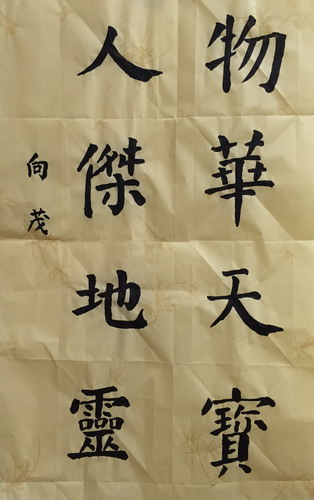 物華天寶
人傑地靈
向茂